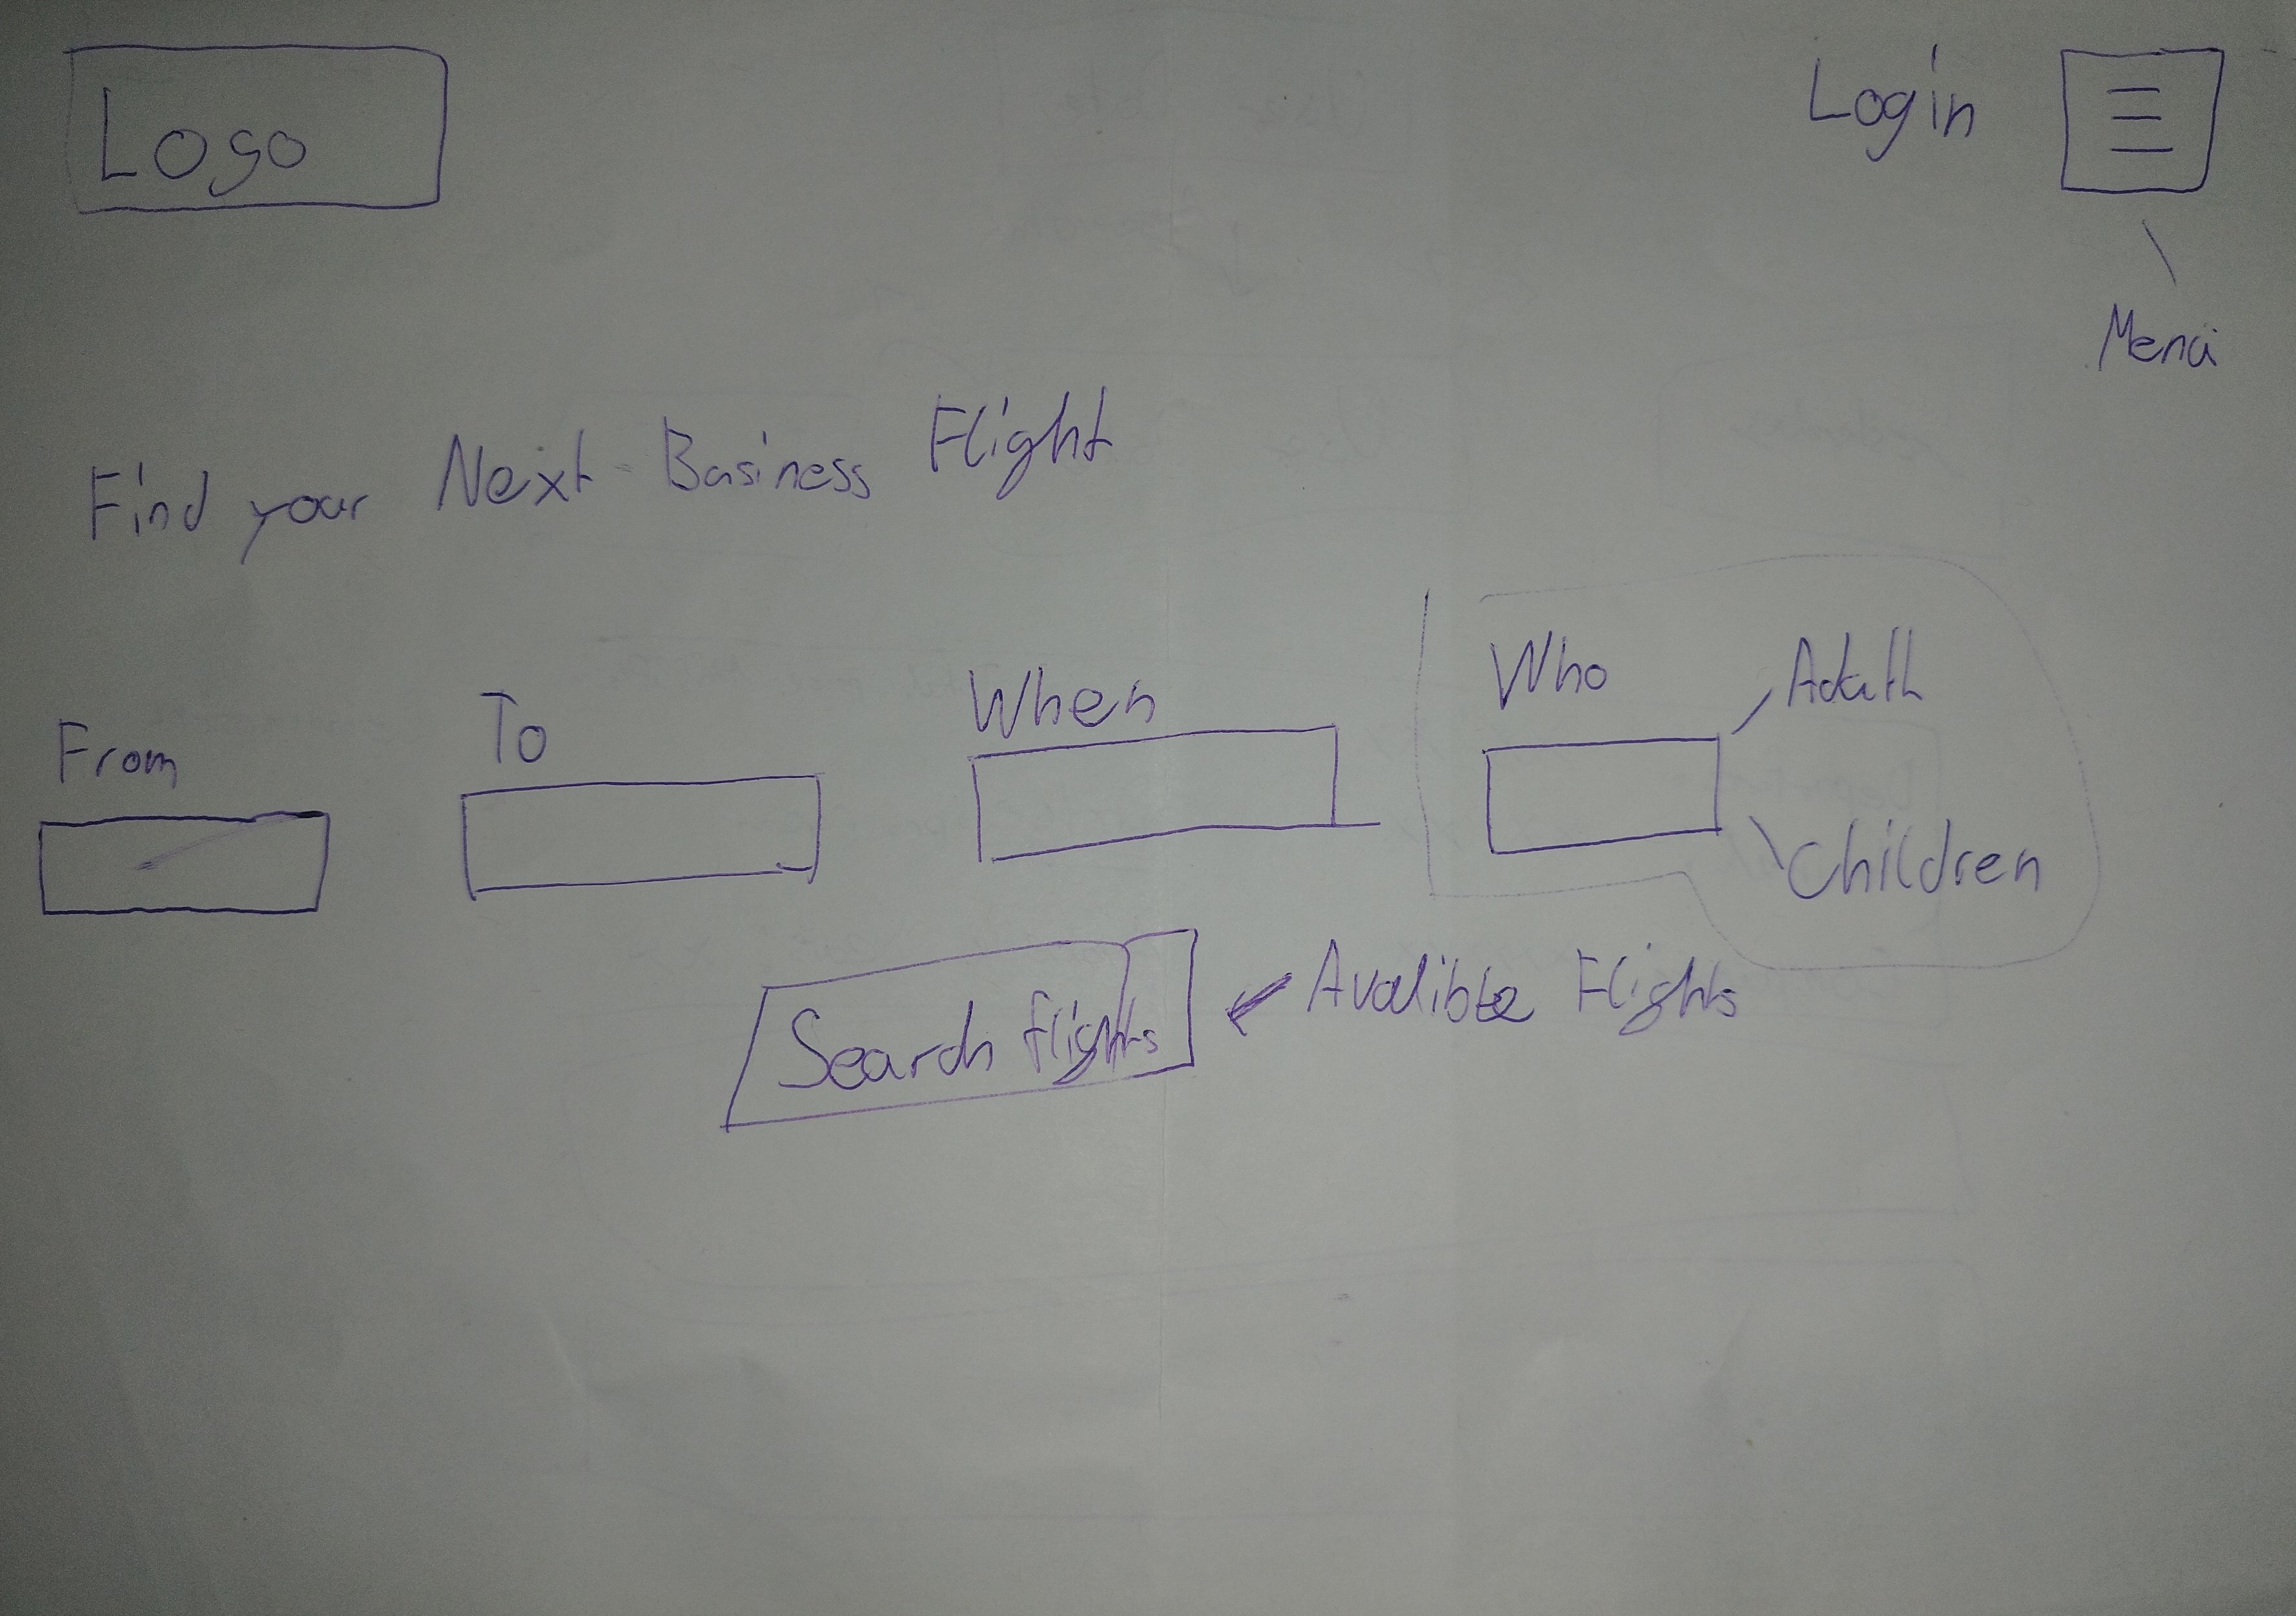 Logo
Login
Menü
Find your Next Business Flight
From
To
When
Who
Adulth
Children
Search flights
Avalible Flights